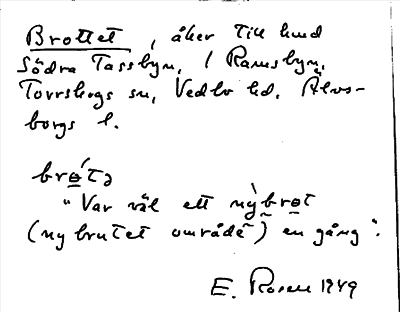 Brottet, åker till hmd
Södra Tassbyn, / Ramsbyn,
Torrskogs sn, Vedbo hd. Älvs-
borgs l.
brǿ̱tə
"Var väl ett nỳbrø̱t
(ny brutet område) en gång".
E. Rosen 1949